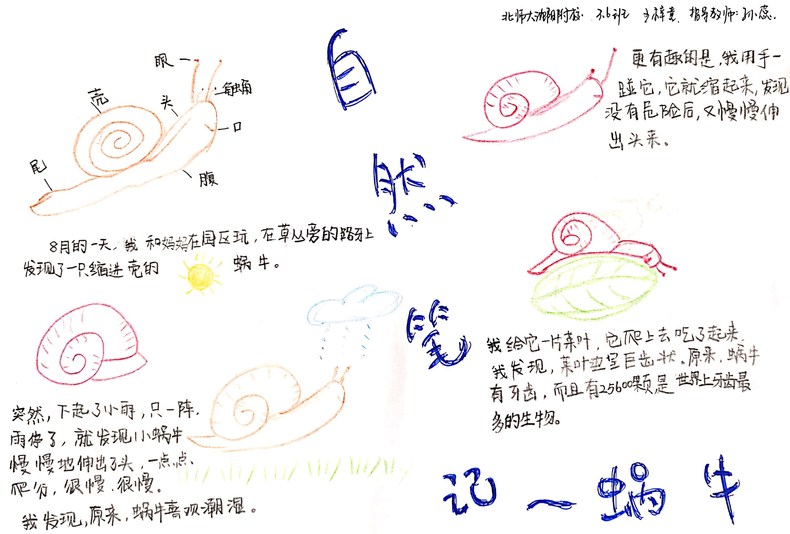 北师大沈阳附校 3.6班 指导教师:孙蕊
自
然
笔
记 ~ 蜗牛
眼
触角
壳
头
口
尾
腹
8月的一天,我和妈妈在园区玩,在草丛旁的路牙上
发现了一只缩进壳的 蜗牛。
突然,下起了小雨,只一阵,
雨停了,就发现小蜗牛
慢慢地伸出了头,一点点
爬行,很慢,很慢。
我发现,原来,蜗牛喜欢潮湿。
更有趣的是,我用手一
碰它,它就缩起来,发现
没有危险后,又慢慢伸
出头来。
我给它一片菜叶,它爬上去吃了起来,
我发现,菜叶呈巨齿状。原来,蜗牛
有牙齿,而且有25600颗是世界上牙齿最
多的生物。